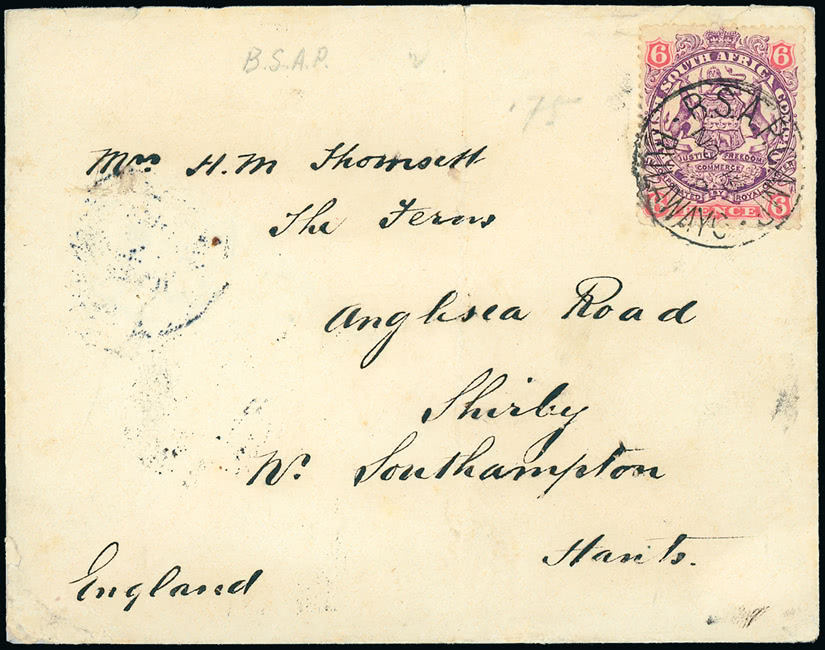 B.S.A.P.
'75
6 6
SOUTH AFRICA
JUSTICE FREEDOM
COMMERCE
6 PENCE 6
B.S.A.P.
Mrs H. M Thomsett
The Ferns
Anglesea Road
Shirby
Nr. Southampton
Hants.
England